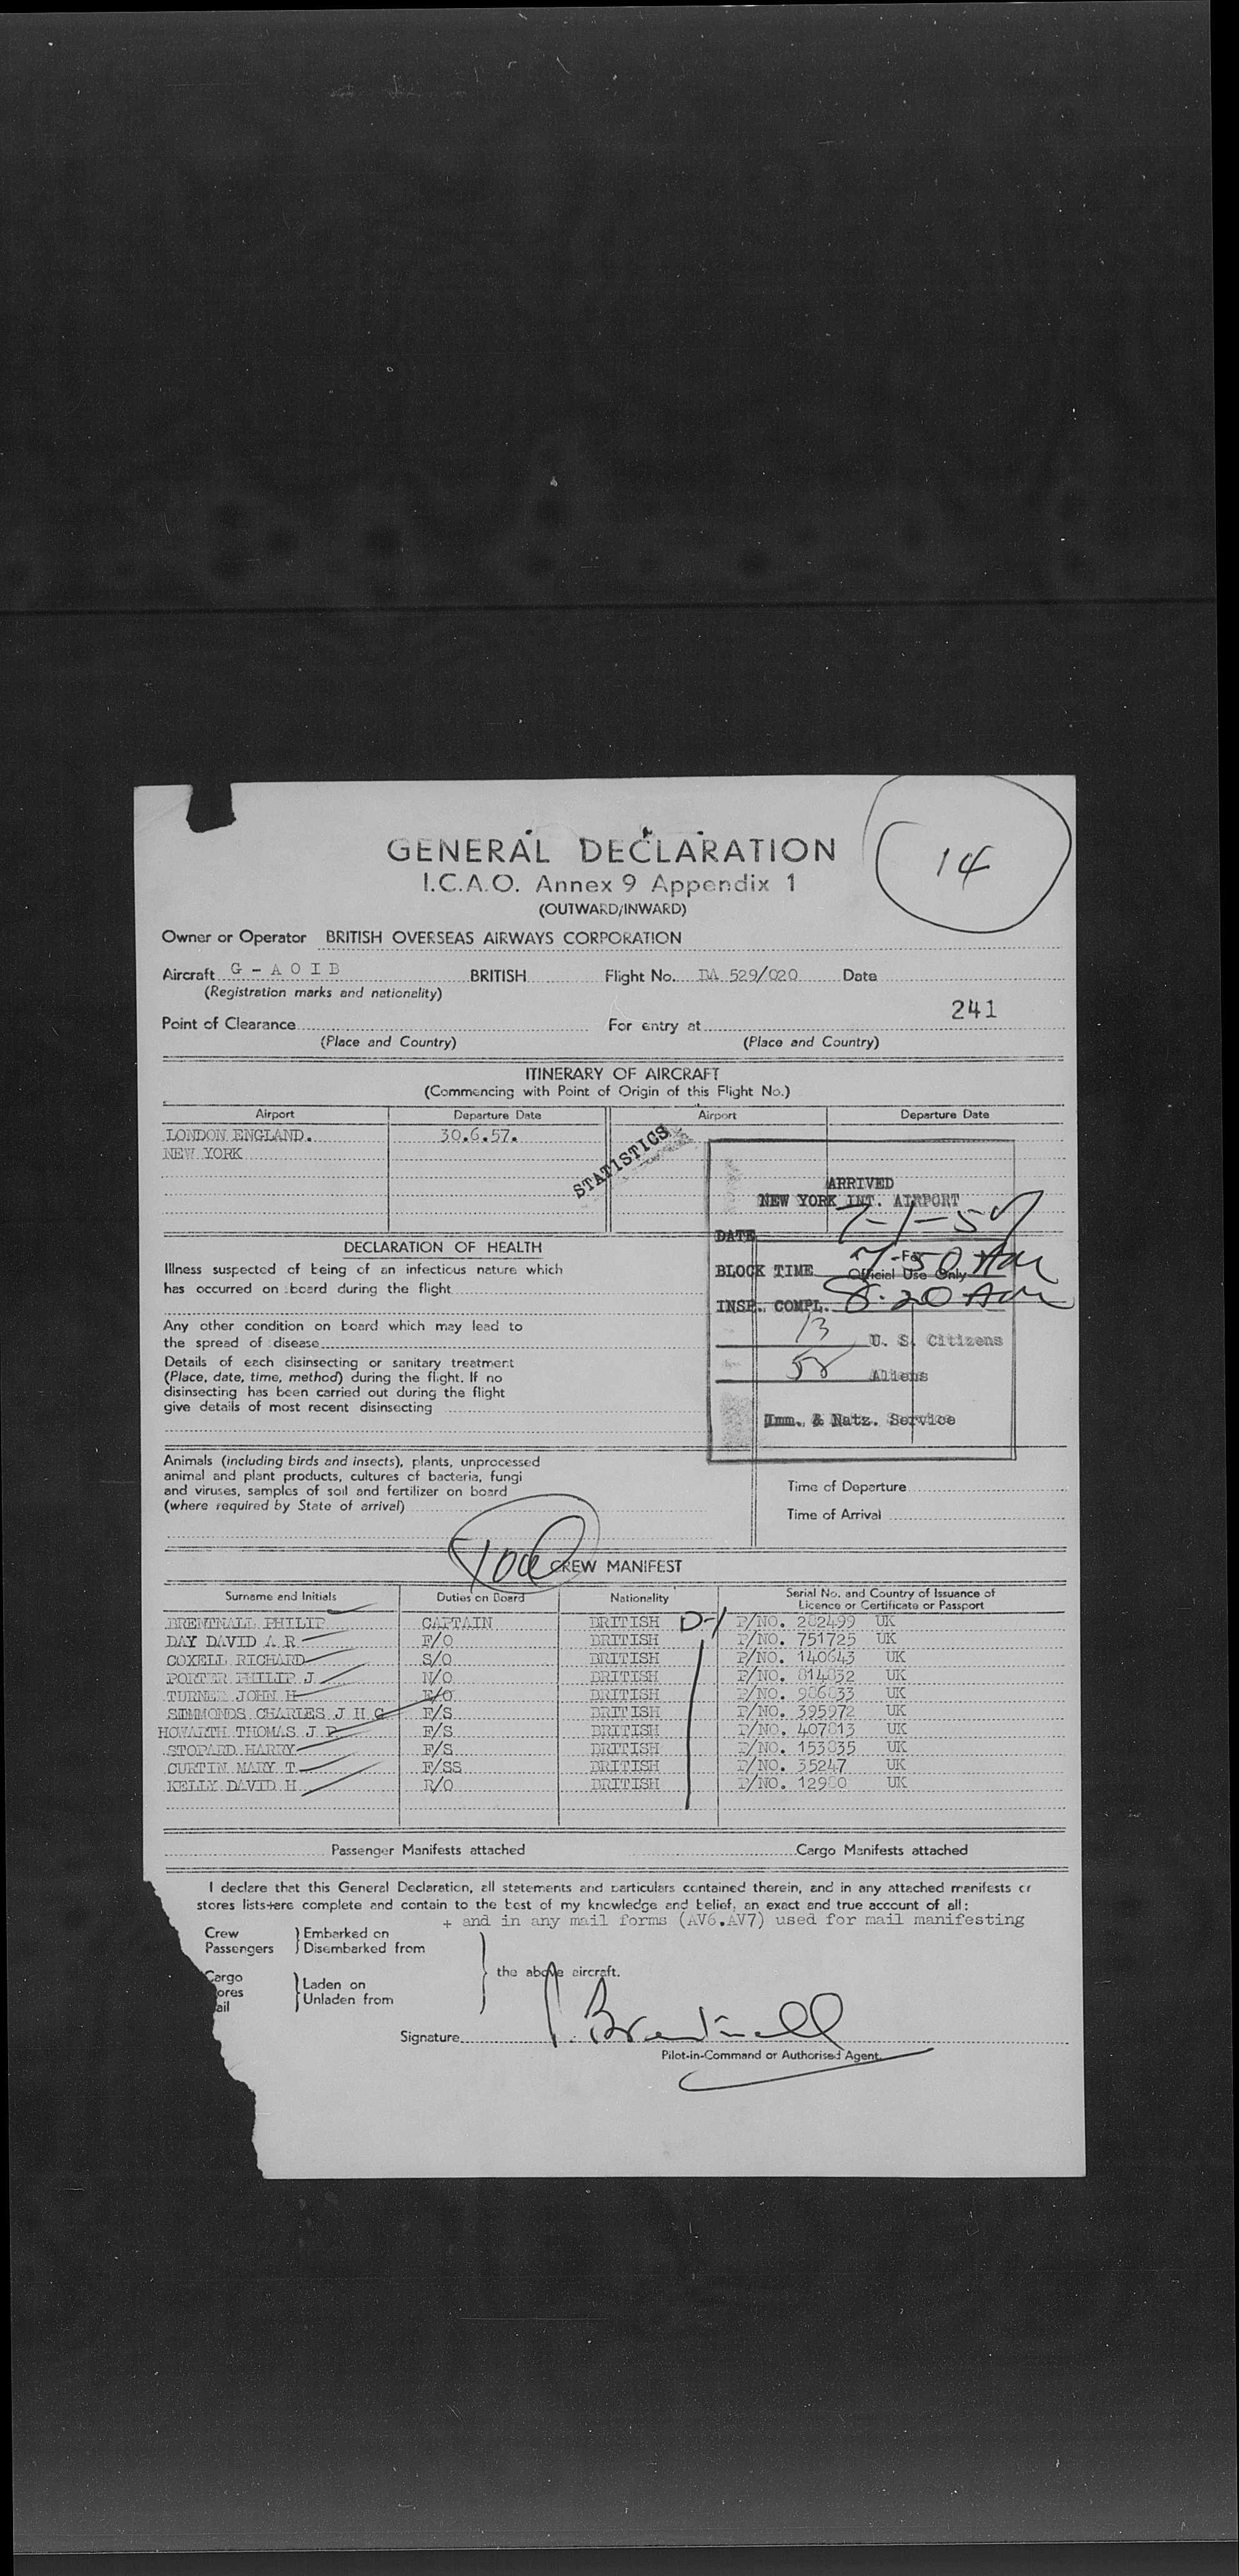 14
GENERAL DECLARATION
I.C.A.O. Annex 9 Appendix 1
(OUTWARD/INWARD)
Owner or Operator BRITISH OVERSEAS AIRWAYS CORPORATION
Aircraft G - A O I B BRITISH Flight No. BA 529/020 Date
(Registration marks and nationality)
241
Point of Clearance For entry at
(Place and Country) (Place and Country)
ITINERARY OF AIRCRAFT
(Commencing with Point of Origin of this Flight No.)
Airport Departure Date Airport Departure Date
LONDON ENGLAND. 30.6.57.
NEW YORK
STATISTICS
ARRIVED
NEW YORK INT. AIRPORT
DATE 7-1-57
BLOCK TIME 7-50 Am
For
Official Use Only
INSP. COMPL. 8.20 Am
13 U. S. Citizens
58 Aliens
Imm. & Natz. Service
DECLARATION OF HEALTH
Illness suspected of being of an infectious nature which
has occurred on board during the flight
Any other condition on board which may lead to
the spread of disease
Details of each disinsecting or sanitary treatment
(Place, date, time, method) during the flight. If no
disinsecting has been carried out during the flight
give details of most recent disinsecting
Animals (including birds and insects), plants, unprocessed
animal and plant products, cultures of bacteria, fungi
and viruses, samples of soil and fertilizer on board
(where required by State of arrival)
Time of Departure
Time of Arrival
CREW MANIFEST
Surname and Initials Duties on Board Nationality Serial No. and Country of Issuance of
Licence or Certificate or Passport
BRENTNALL PHILIP CAPTAIN BRITISH D-1 P/NO. 202499 UK
DAY DAVID A R F/O BRITISH P/NO. 751725 UK
COXELL RICHARD S/O BRITISH P/NO. 140643 UK
PORTER PHILIP J N/O BRITISH P/NO. 814832 UK
TURNER JOHN H E/O BRITISH P/NO. 986833 UK
SIMMONDS CHARLES J H G F/S BRITISH P/NO. 395972 UK
HOWARTH THOMAS J F/S BRITISH P/NO. 407813 UK
STOPARD HARRY F/S BRITISH P/NO. 153835 UK
CURTIN MARY T F/SS BRITISH P/NO. 35247 UK
KELLY DAVID H R/O BRITISH P/NO. 12980 UK
Passenger Manifests attached Cargo Manifests attached
I declare that this General Declaration, all statements and particulars contained therein, and in any attached manifests or
stores lists+are complete and contain to the best of my knowledge and belief, an exact and true account of all:
+ and in any mail forms (AV6.AV7) used for mail manifesting
Crew } Embarked on
Passengers } Disembarked from
the above aircraft.
Cargo } Laden on
ores } Unladen from
ail
Signature P. Brentnall
Pilot-in-Command or Authorised Agent.